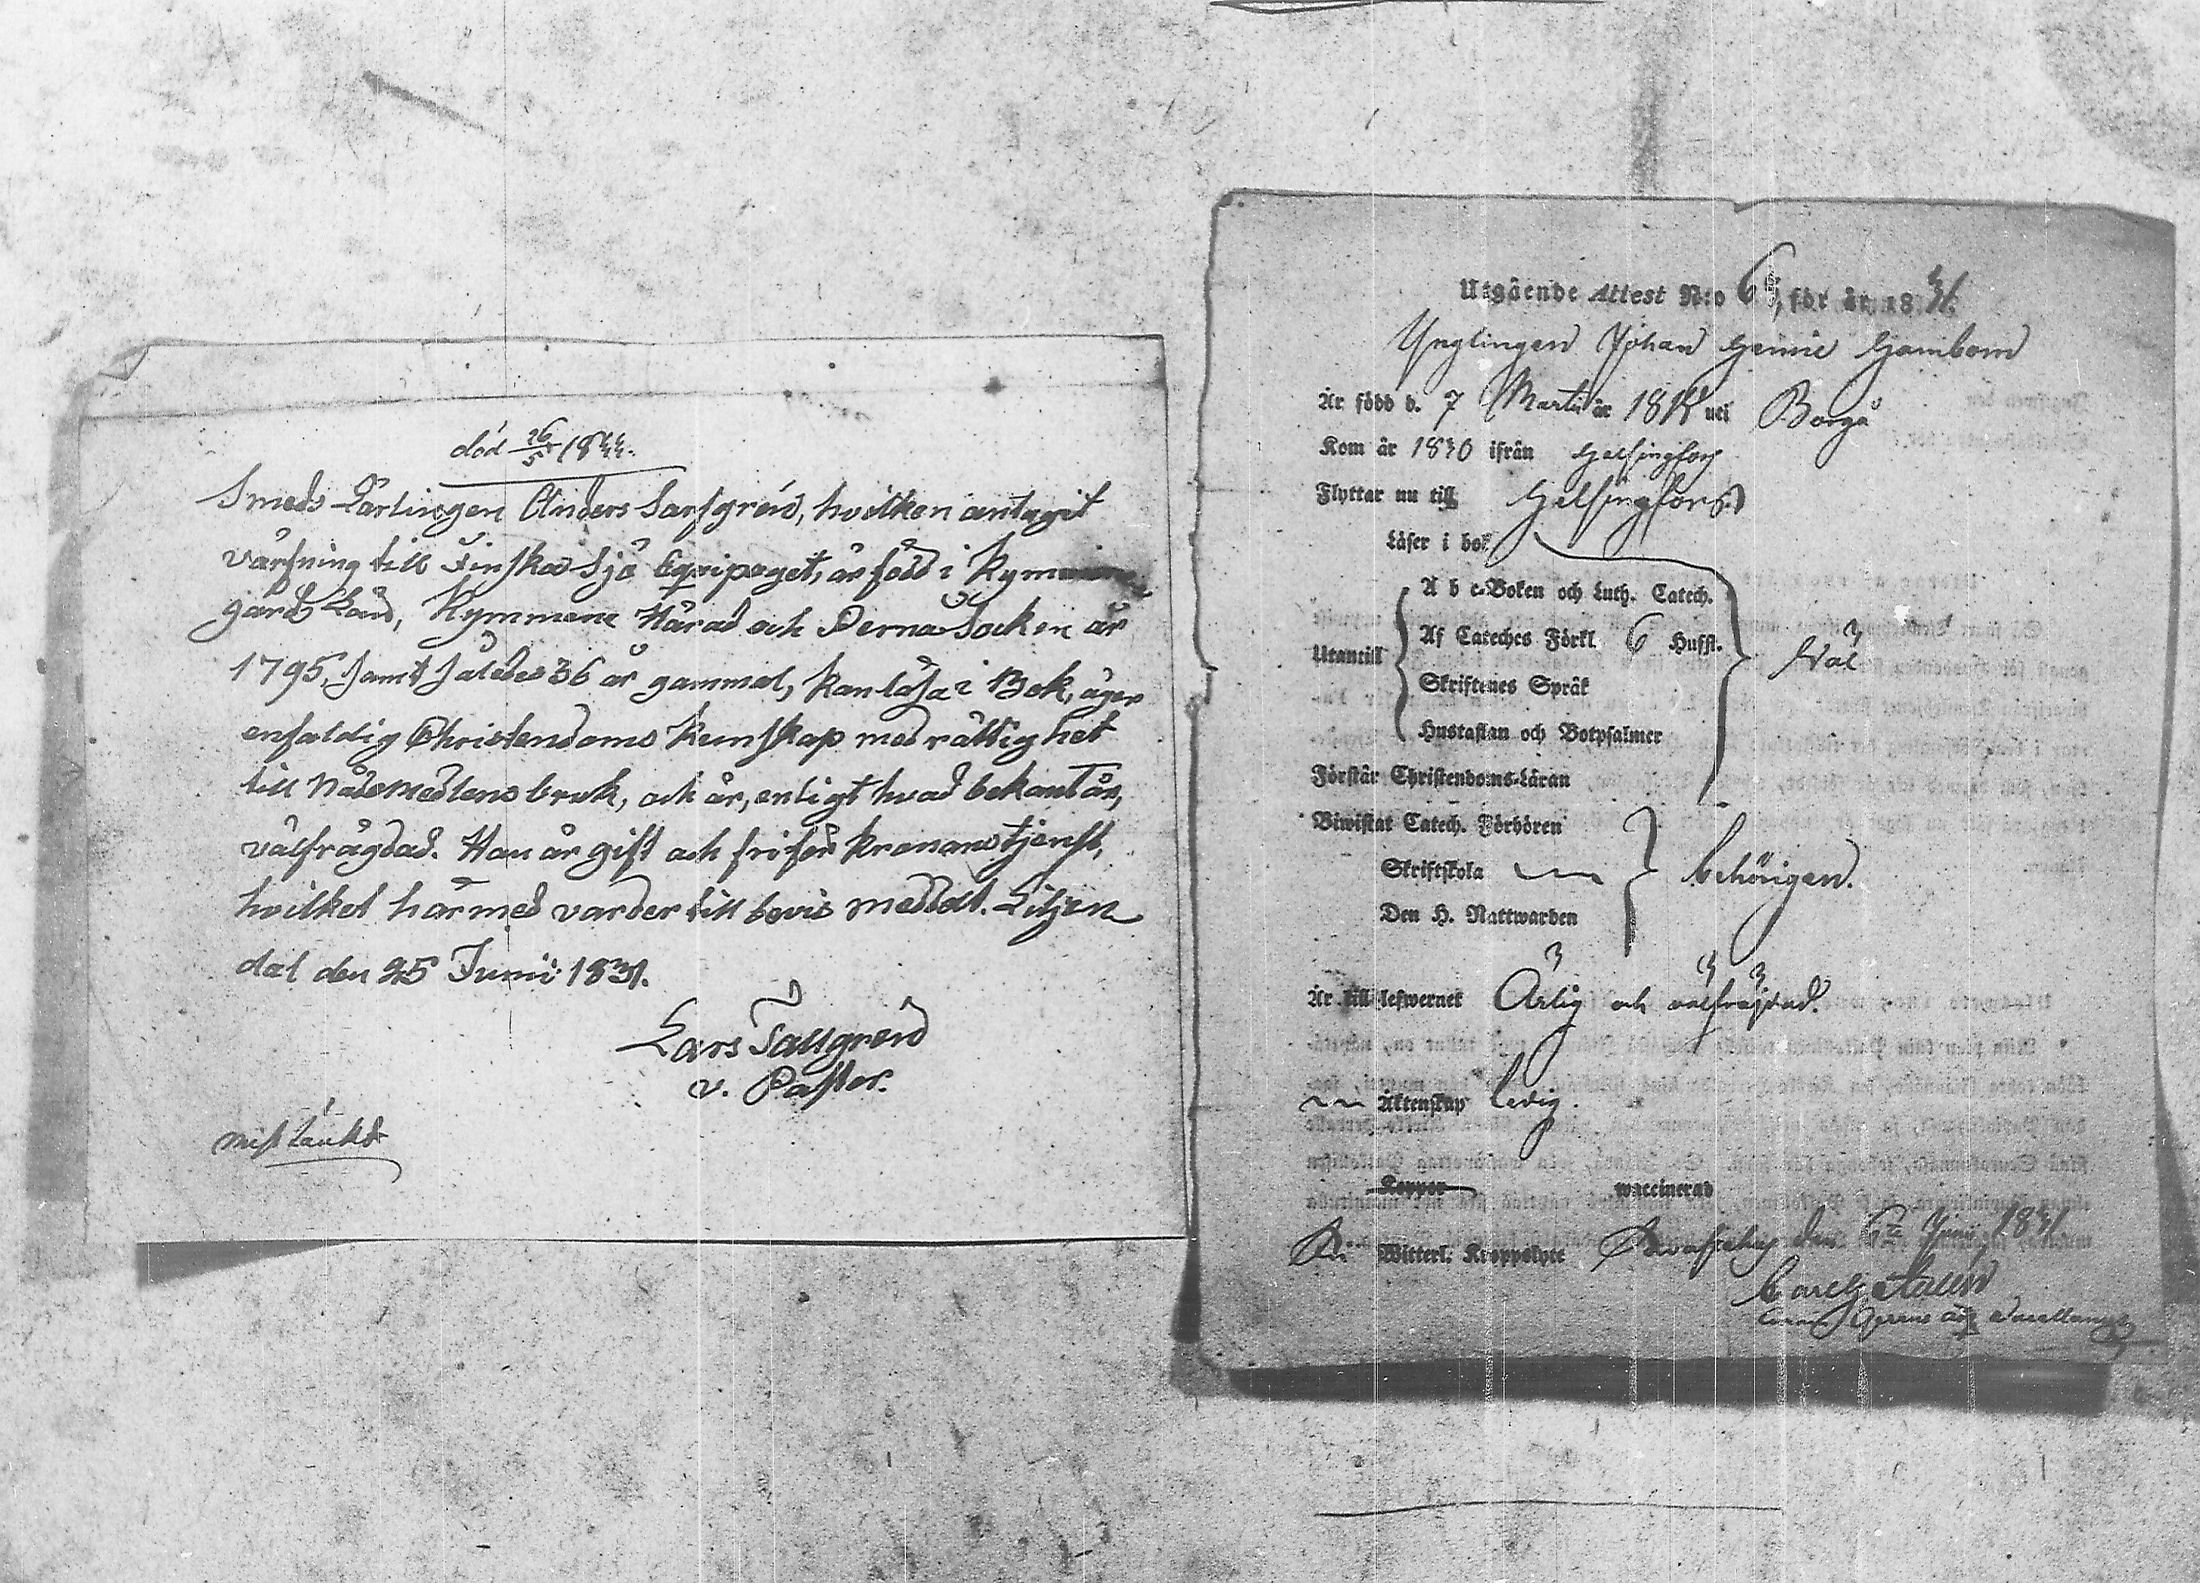 död 26/5 1833.
Smeds Lärlingen Anders Sarfgrén, hvilken antagit
värfning till Finska Sjö Eqvipaget, är född i Kymmene
gårds Län, Kymmene Härad och Perna Socken år
1795, samt således 36 år gammal, kan läsa i Bok, äger
enfaldig Christendoms Kunskap med rättighet
till Nådemedlens bruk, och är, enligt hvad bekant är,
välfrägdad. Han är gift och fri från kronans tjenst,
hvilket härmed varder till bevis meddelt. Liljen
dal den 25 Junii 1831.
Lars Tallgren
v. Pastor.
Utgående Attest N:o 6, för år 1831.
Ynglingen Johan
Är född d. 7 Martii år 18 uti Borgå
Kom år 1830 ifrån Helsingfors
Flyttar nu till Helsingfors
Läser i bok
Utantill
A b c-Boken och Luth. Catech.
Af Cateches Förkl. 6 Hufst.
Skriftenes Språk
Hustaflan och Botpsalmer
Väl
Förstår Christendoms-Läran
Biwistat Catech. Förhören
Skriftskola
Den H. Nattwarden
behörigen.
Är till lefwernet Ärlig och välfräjdad.
Äktenskap ledig.
Koppor waccinerad
Witterl. Kroppslyte den 6te Junii 1831